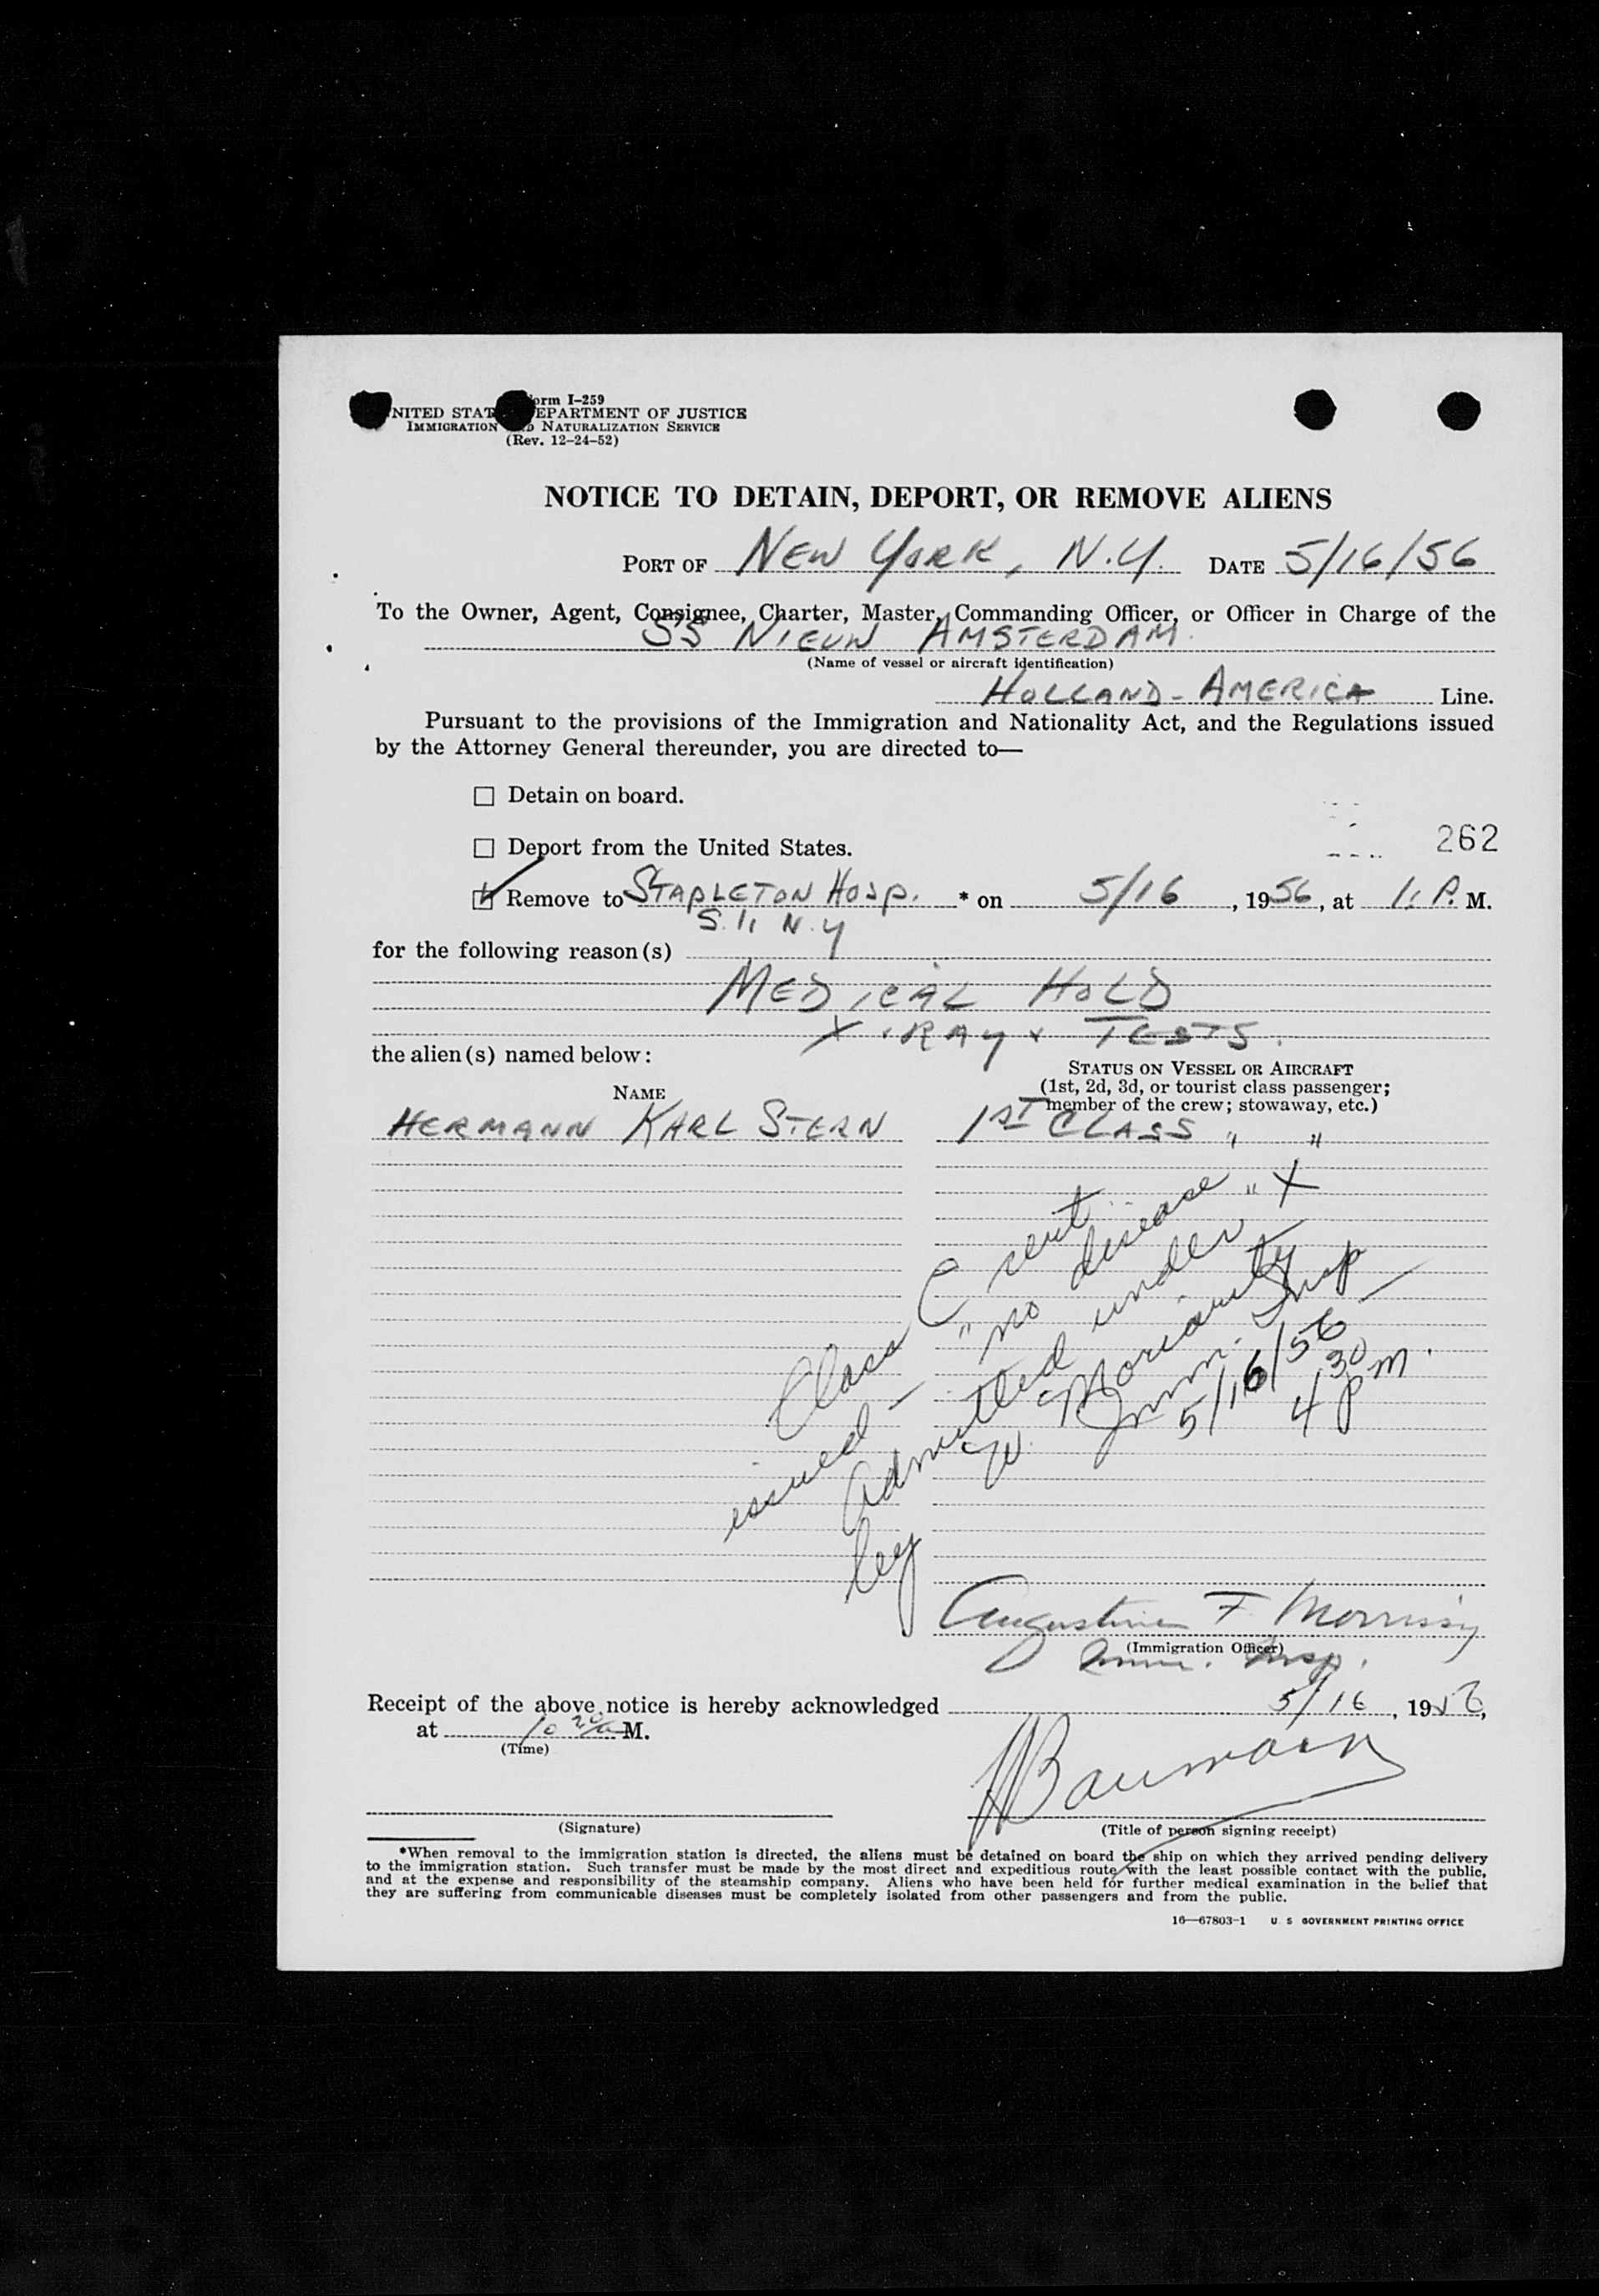 Form I-259
UNITED STATES DEPARTMENT OF JUSTICE
IMMIGRATION AND NATURALIZATION SERVICE
(Rev. 12-24-52)
NOTICE TO DETAIN, DEPORT, OR REMOVE ALIENS
PORT OF NEW YORK, N.Y. DATE 5/16/56
To the Owner, Agent, Consignee, Charter, Master, Commanding Officer, or Officer in Charge of the
SS NIEUW AMSTERDAM
(Name of vessel or aircraft identification)
HOLLAND-AMERICA Line.
Pursuant to the provisions of the Immigration and Nationality Act, and the Regulations issued
by the Attorney General thereunder, you are directed to—
☐ Detain on board.
☐ Deport from the United States.
262
☑ Remove to STAPLETON HOSP. * on 5/16, 1956, at 1. P. M.
S.I. N.Y
for the following reason(s)
MEDICAL HOLD
X-RAY + TESTS.
the alien(s) named below:
NAME
STATUS ON VESSEL OR AIRCRAFT
(1st, 2d, 3d, or tourist class passenger;
member of the crew; stowaway, etc.)
HERMANN KARL STERN 1ST CLASS " "
Class C
issued — "no disease" X
Admitted under
by W. Moriarity
Imm. Insp —
5/16/56
4 30 pm.
Augustine F. Morrissy
(Immigration Officer)
Imm. Insp.
Receipt of the above notice is hereby acknowledged 5/16, 1956,
at 10 20 a M.
(Time)
(Signature)
(Title of person signing receipt)
*When removal to the immigration station is directed, the aliens must be detained on board the ship on which they arrived pending delivery
to the immigration station. Such transfer must be made by the most direct and expeditious route with the least possible contact with the public,
and at the expense and responsibility of the steamship company. Aliens who have been held for further medical examination in the belief that
they are suffering from communicable diseases must be completely isolated from other passengers and from the public.
16—67803-1 U. S. GOVERNMENT PRINTING OFFICE